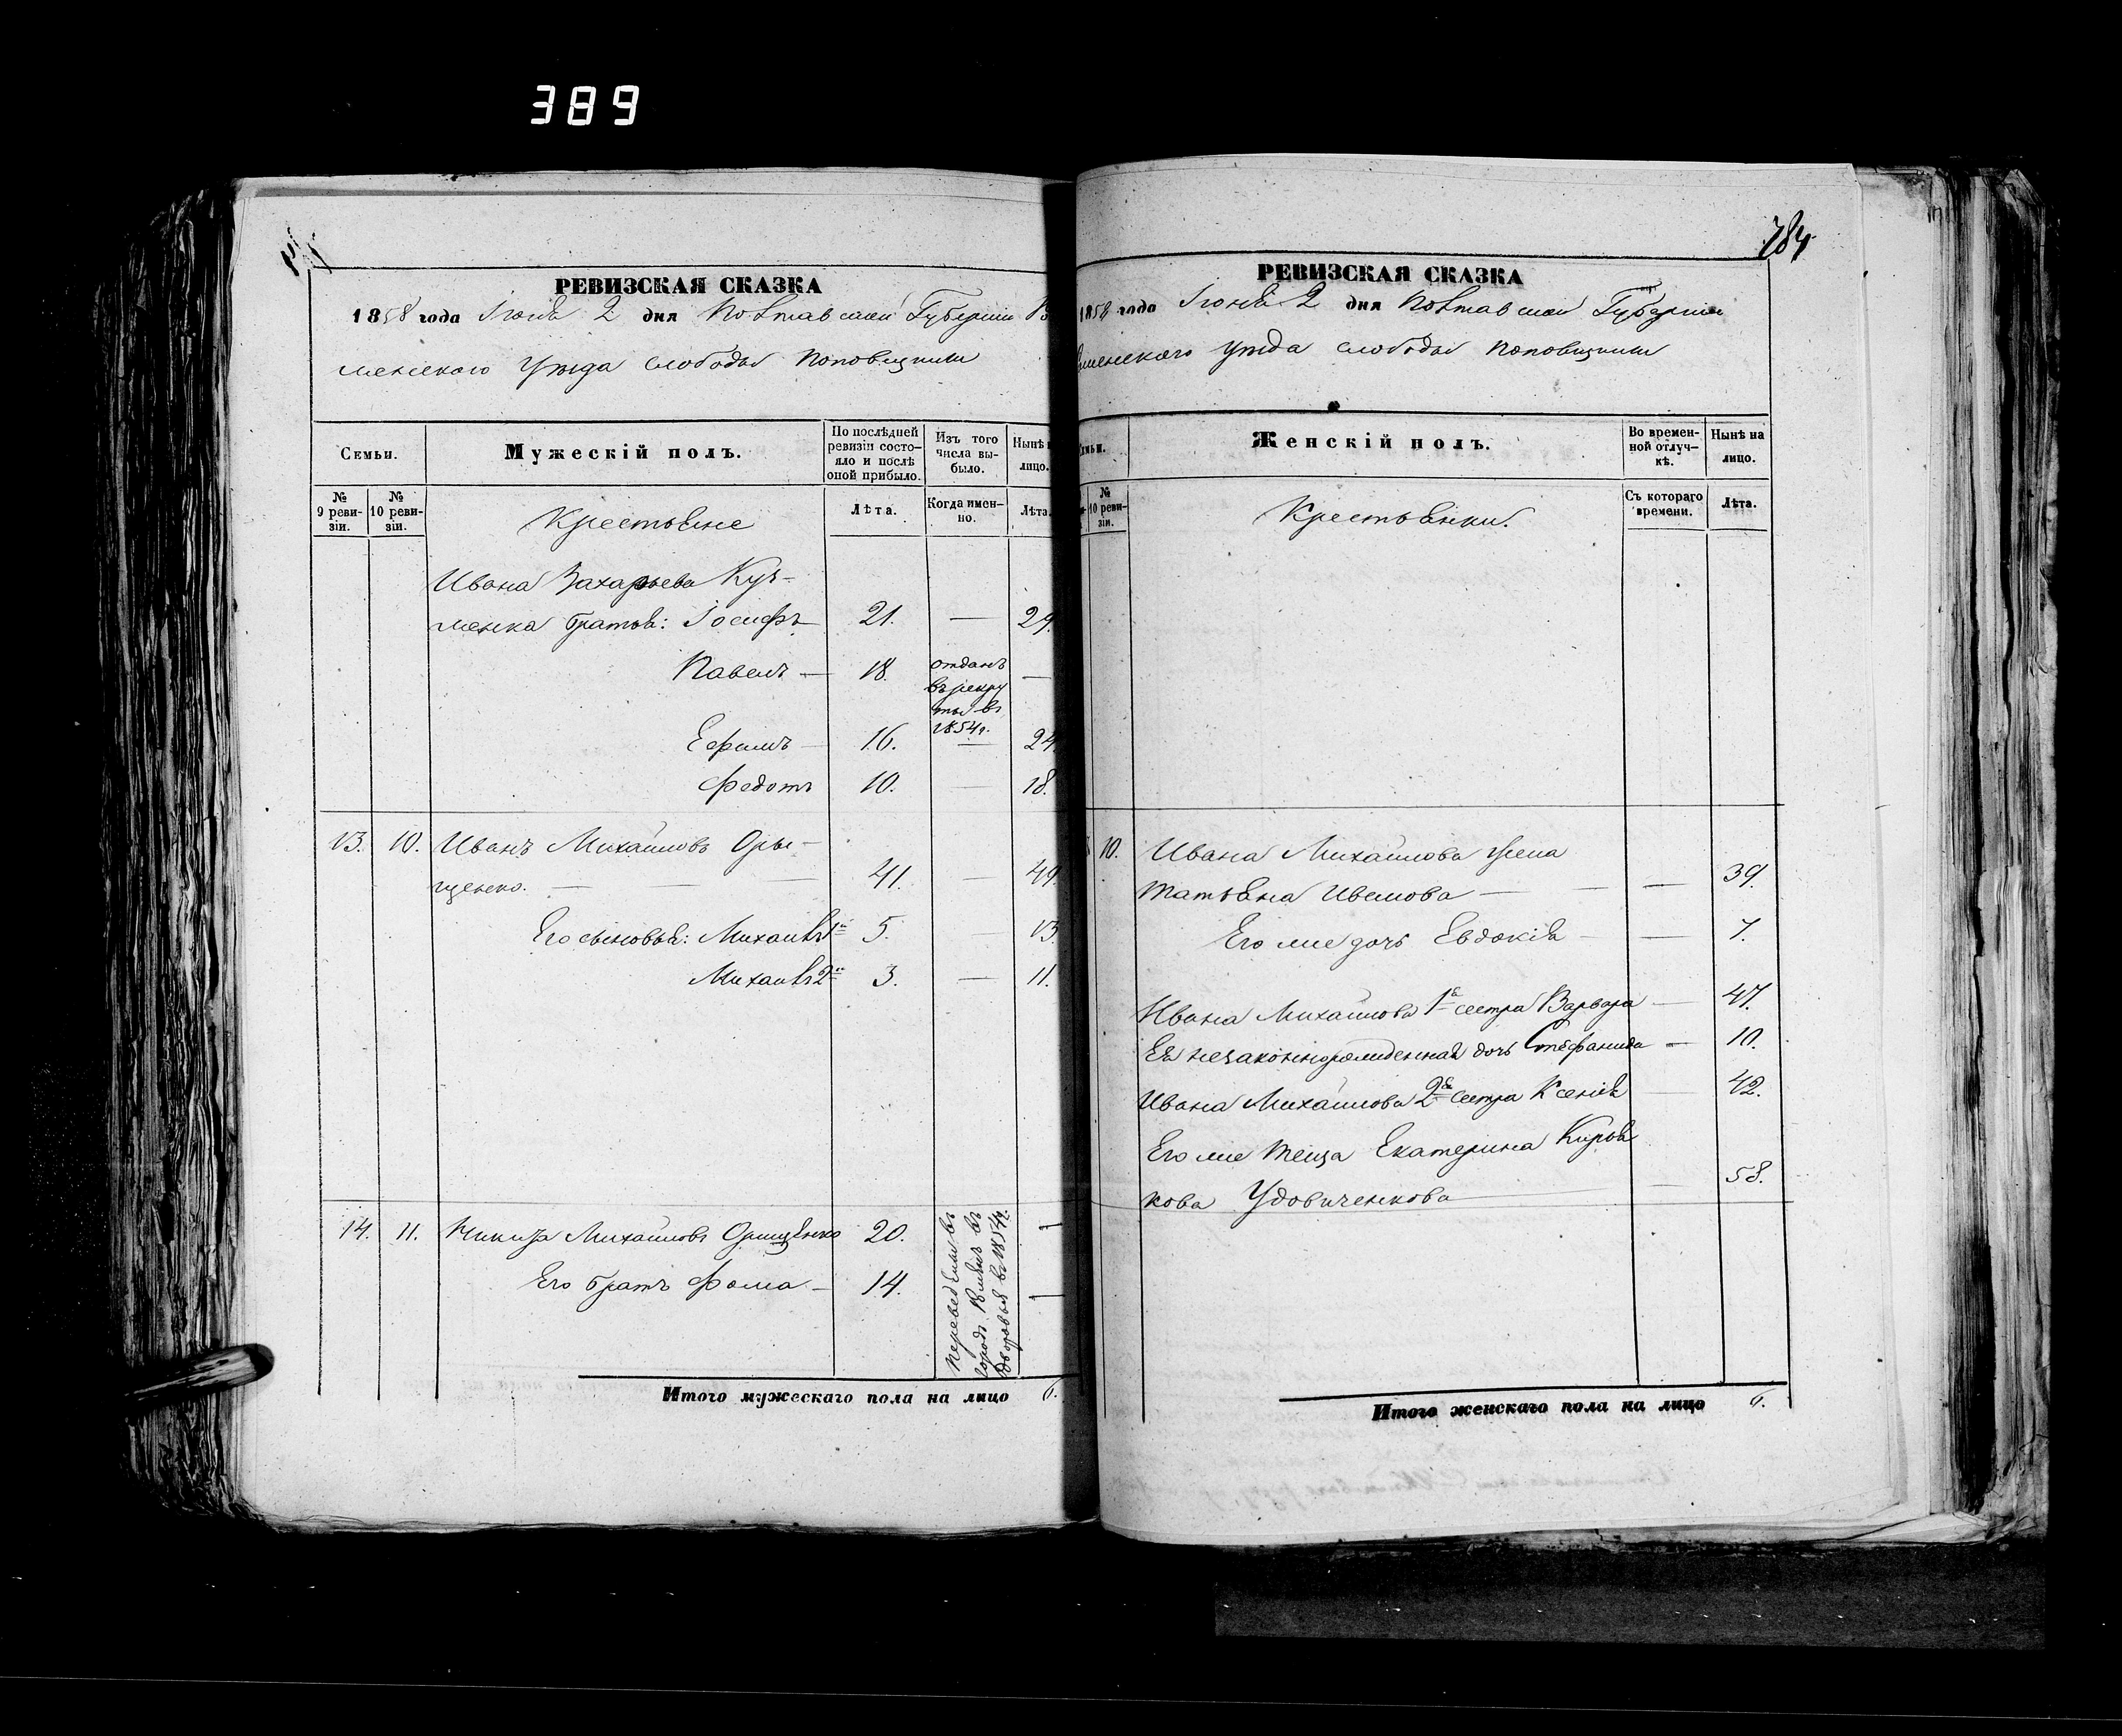 389
РЕВИЗСКАЯ СКАЗКА
1858 года Іюня 2 дня Полтавской Губерніи
менскаго Уѣзда слободы Поповщины
Семьи.
Мужескій полъ.
По послѣдней ревизіи состояло и послѣ оной прибыло.
Изъ того числа выбыло.
Нынѣ лицо.
№ 9 ревизіи.
№ 10 ревизіи.
Крестьяне
Лѣта.
Когда именно.
Лѣта.
Ивана Захарьева Куз-
менка братья: Іосифъ 21. — 29.
Павелъ — 18. отданъ въ рекруты въ 1854 г. —
Ефимъ — 16. — 24.
Федотъ 10. — 18.
13. 10. Иванъ Михайловъ Оры-
щенко. — — — 41. — 49.
Его сыновья: Михаилъ 1й 5. — 13.
Михаилъ 2й 3. — 11.
14. 11. Михайловъ Орищенко 20. —
Его братъ Фома — 14. —
Переведены въ
городъ въ
дворовые въ 1854 г.
Итого мужескаго пола на лицо 6.
784.
РЕВИЗСКАЯ СКАЗКА
1858 года Іюня 2 дня Полтавской Губерніи
менскаго Уѣзда слободы Поповщины
Семьи.
Женскій полъ.
Во временной отлучкѣ.
Нынѣ на лицо.
№ 10 ревизіи.
Крестьянки.
Съ котораго времени.
Лѣта.
10. Ивана Михайлова жена
Татьяна — — — 39.
Его же дочь Евдокія — — 7.
Ивана Михайлова 1я сестра Варвара — 47.
Ея незаконнорожденная дочь Стефанида — 10.
Ивана Михайлова 2я сестра Ксенія — 42.
Его же теща Екатерина
кова Удовиченкова — 58.
Итого женскаго пола на лицо 6.